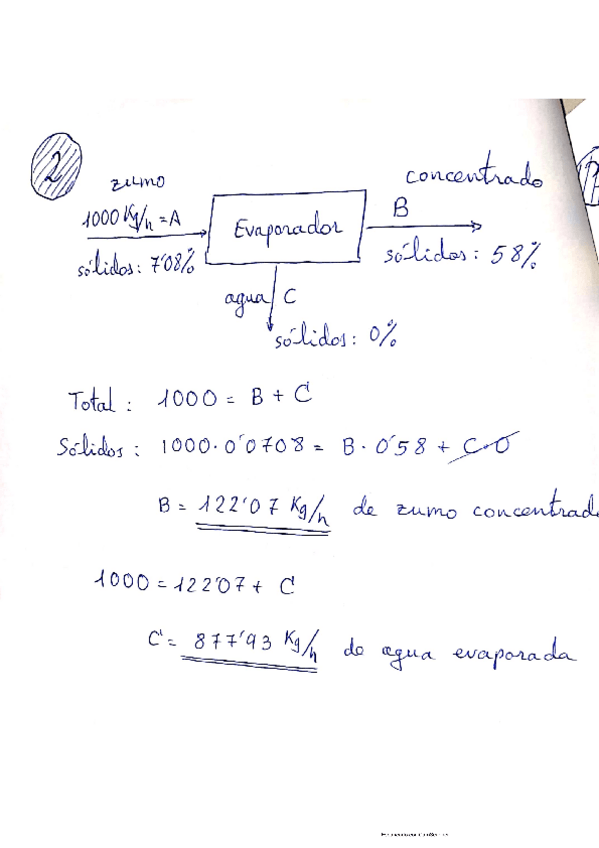 2
zumo
1000 Kg/h = A
sólidos: 7'08%
Evaporador
concentrado
B
sólidos: 58%
agua C
sólidos: 0%
Total: 1000 = B + C
Sólidos: 1000·0'0708 = B·0'58 + C·0
B = 122'07 Kg/h de zumo concentrad
1000 = 122'07 + C
C = 877'93 Kg/h de agua evaporada